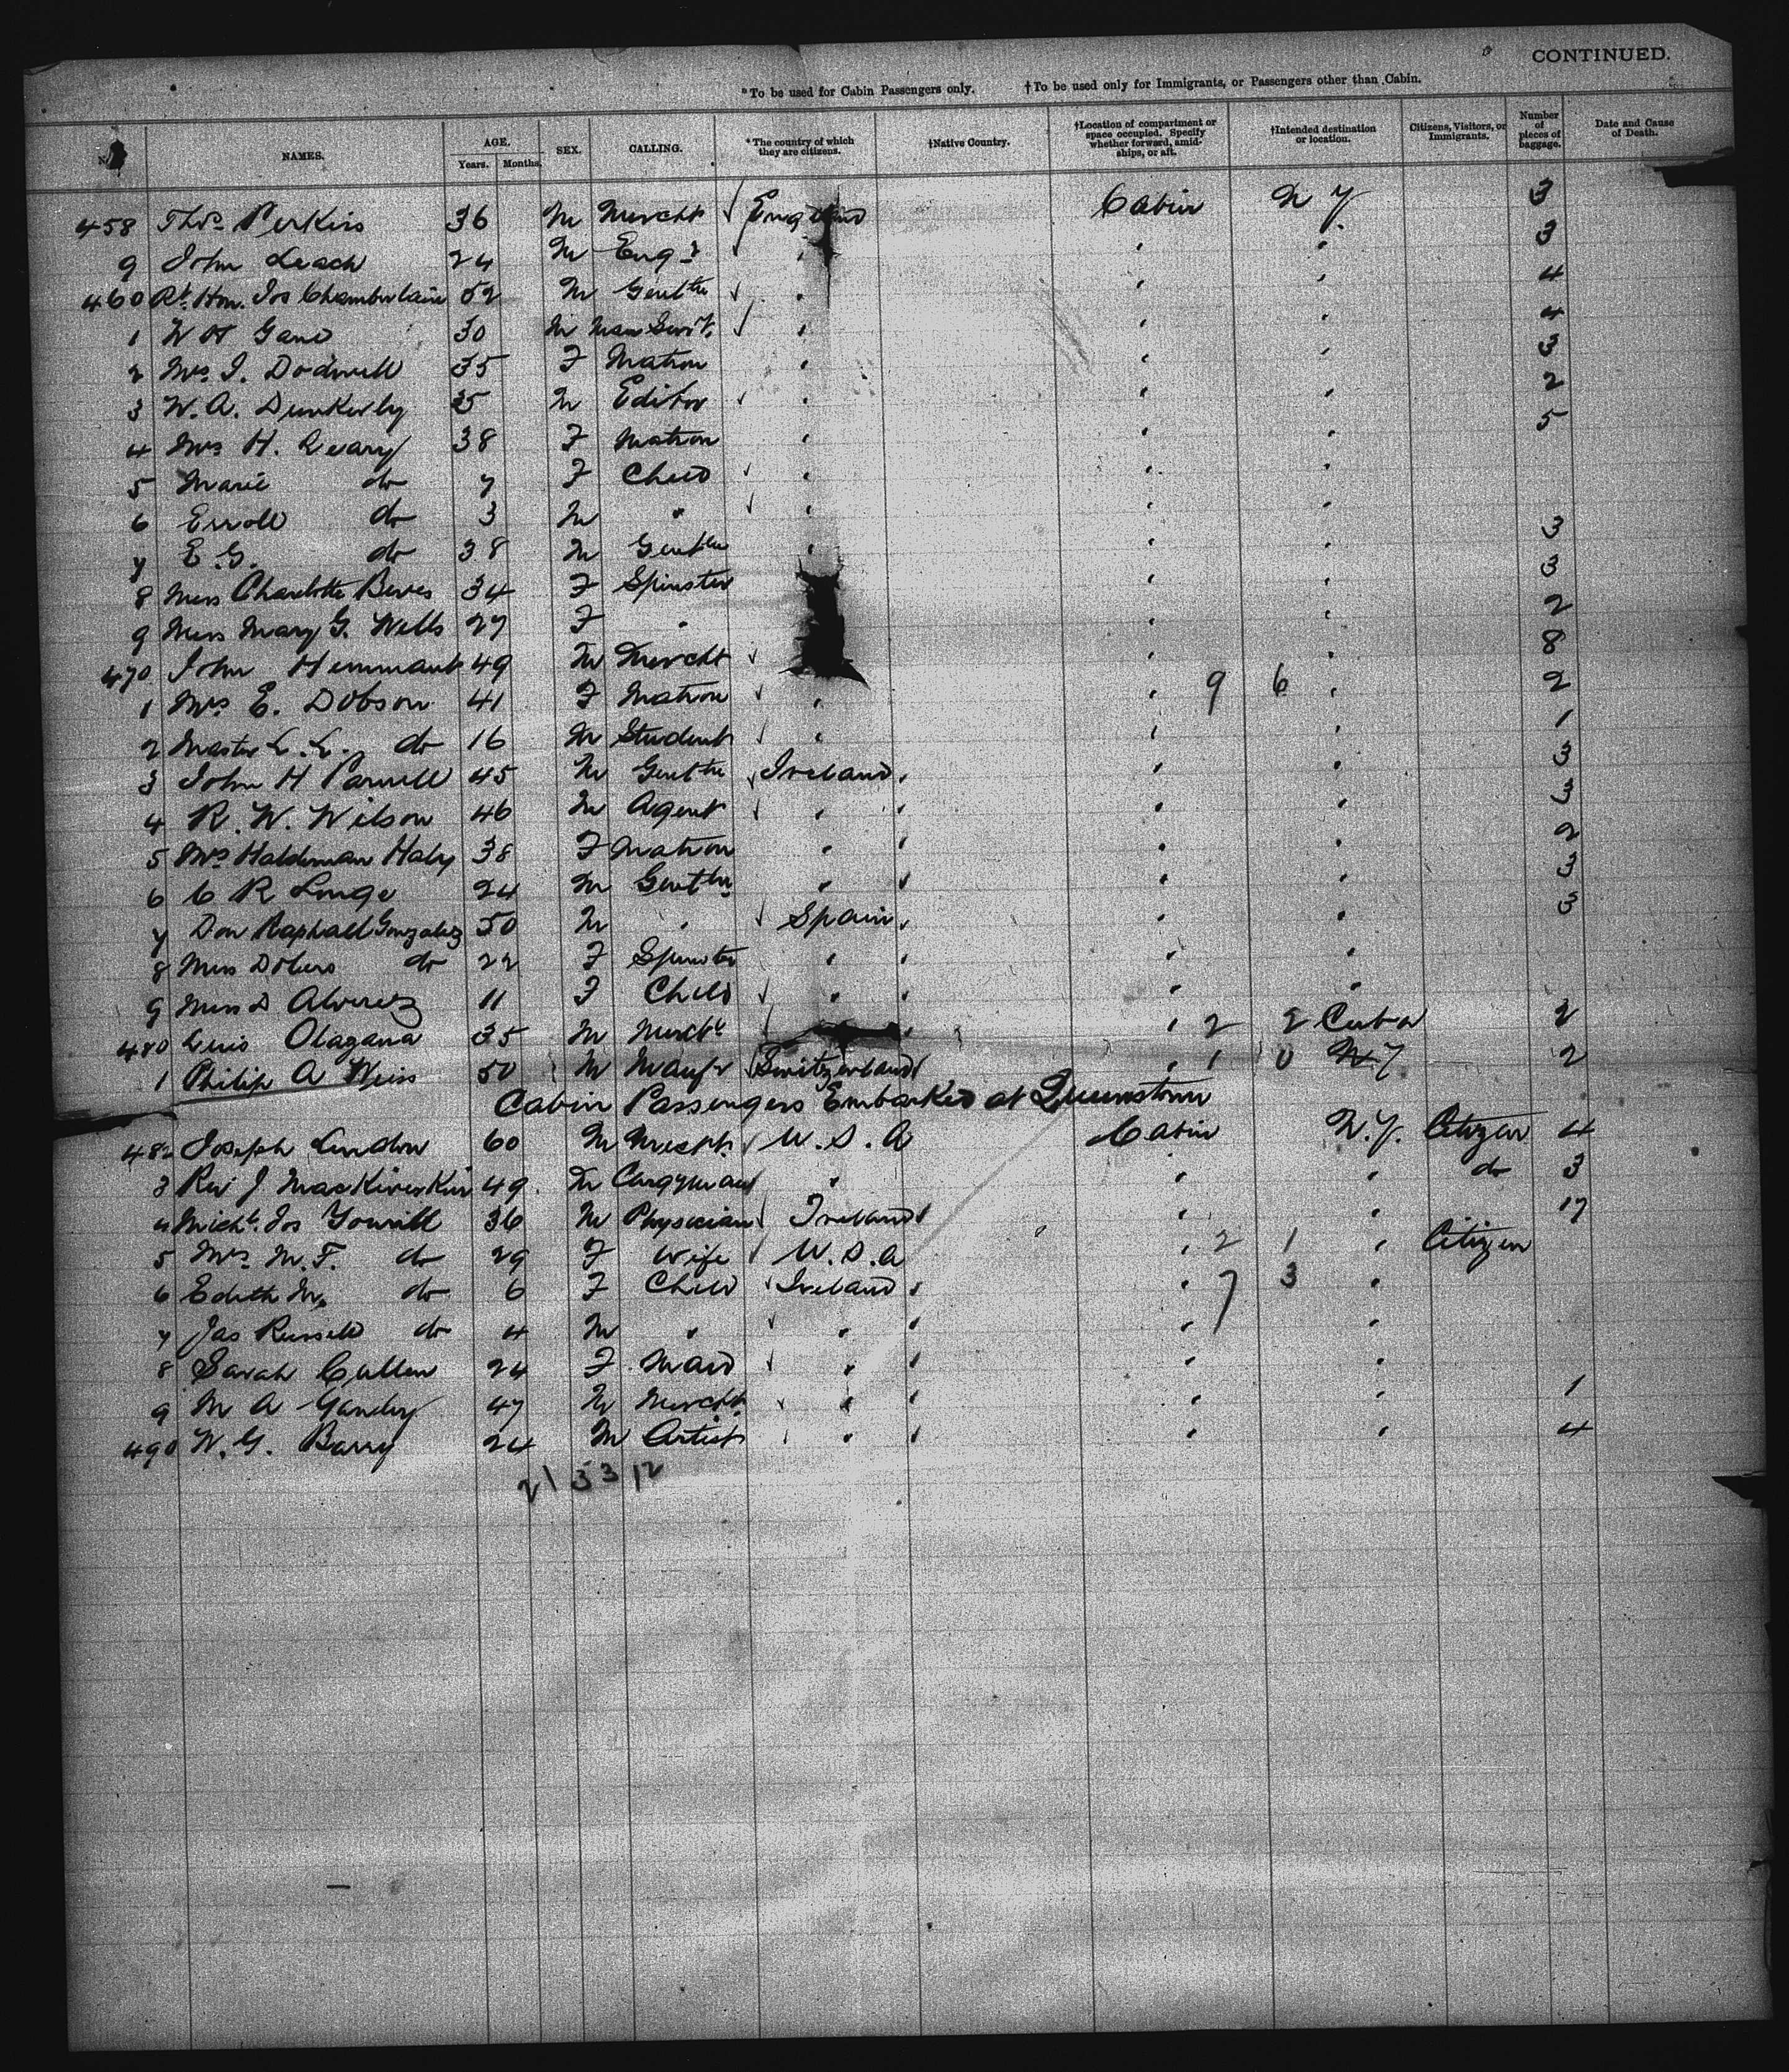 CONTINUED.
*To be used for Cabin Passengers only. †To be used only for Immigrants, or Passengers other than Cabin.
NAMES. AGE. Years. Months. SEX. CALLING. *The country of which they are citizens. †Native Country. †Location of compartment or space occupied. Specify whether forward, amidships, or aft. †Intended destination or location. Citizens, Visitors, or Immigrants. Number of pieces of baggage. Date and Cause of Death.
458 Thos Perkins 36 M Mercht England Cabin N Y 3
9 John Leach 24 M Engr " " " 3
460 Rt. Hon. Jos Chamberlain 52 M Gentln " " " 4
1 W H Gane 30 M Man Servt. " " " 4
2 Mrs I. Dodwell 35 F Matron " " " 3
3 W. A. Dunkerly 35 M Editor " " " 2
4 Mrs H. Leary 38 F Matron " " " 5
5 Marie do 7 F Child " " "
6 Erroll do 3 M " " " "
7 E. G. do 38 M Gentln " " " 3
8 Miss Charlotte Beves 34 F Spinster " " 3
9 Miss Mary G. Wells 27 F " " " 2
470 John Hemmant 49 M Mercht " " 8
1 Mrs E. Dobson 41 F Matron " " 9 6 " 2
2 Master L. L. do 16 M Student " " " 1
3 John H Parnell 45 M Gentln Ireland " " " 3
4 R. W. Wilson 46 M Agent " " " " 3
5 Mrs Haldeman Haly 38 F Matron " " " " 2
6 C R Longe 24 M Gentln " " " " 3
7 Don Raphael Gonzalez 50 M " Spain " " " 3
8 Miss Dolers do 22 F Spinster " " " "
9 Miss D Alverez 11 F Child " " " "
480 Luis Olazana 35 M Mercht " " 2 2 Cuba 2
1 Philip A Weiss 50 M Manfr Switzerland " 1 0 N Y 2
Cabin Passengers Embarked at Queenstown
482 Joseph London 60 M Mercht. U. S. A Cabin N. Y. Citizen 4
3 Rev J 49 M Clergyman " " " do 3
4 Michl. Jos 36 M Physician Ireland " " 17
5 Mrs M. F. do 29 F Wife U. S. A " 2 1 " Citizen
6 Edith M. do 6 F Child Ireland " " 7 3 "
7 Jas Russell do 4 M " " " " "
8 Sarah Cullen 24 F Maid " " " "
9 M A 47 M Mercht " " " " 1
490 W. G. Barry 24 M Artist " " " " 4
21 33 12